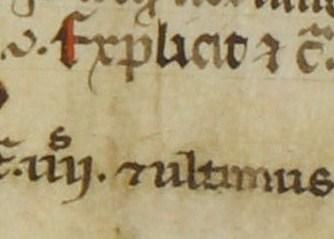 .v. Explicit ⁊ c̄.
c̄. iiijs. ⁊ ultimus